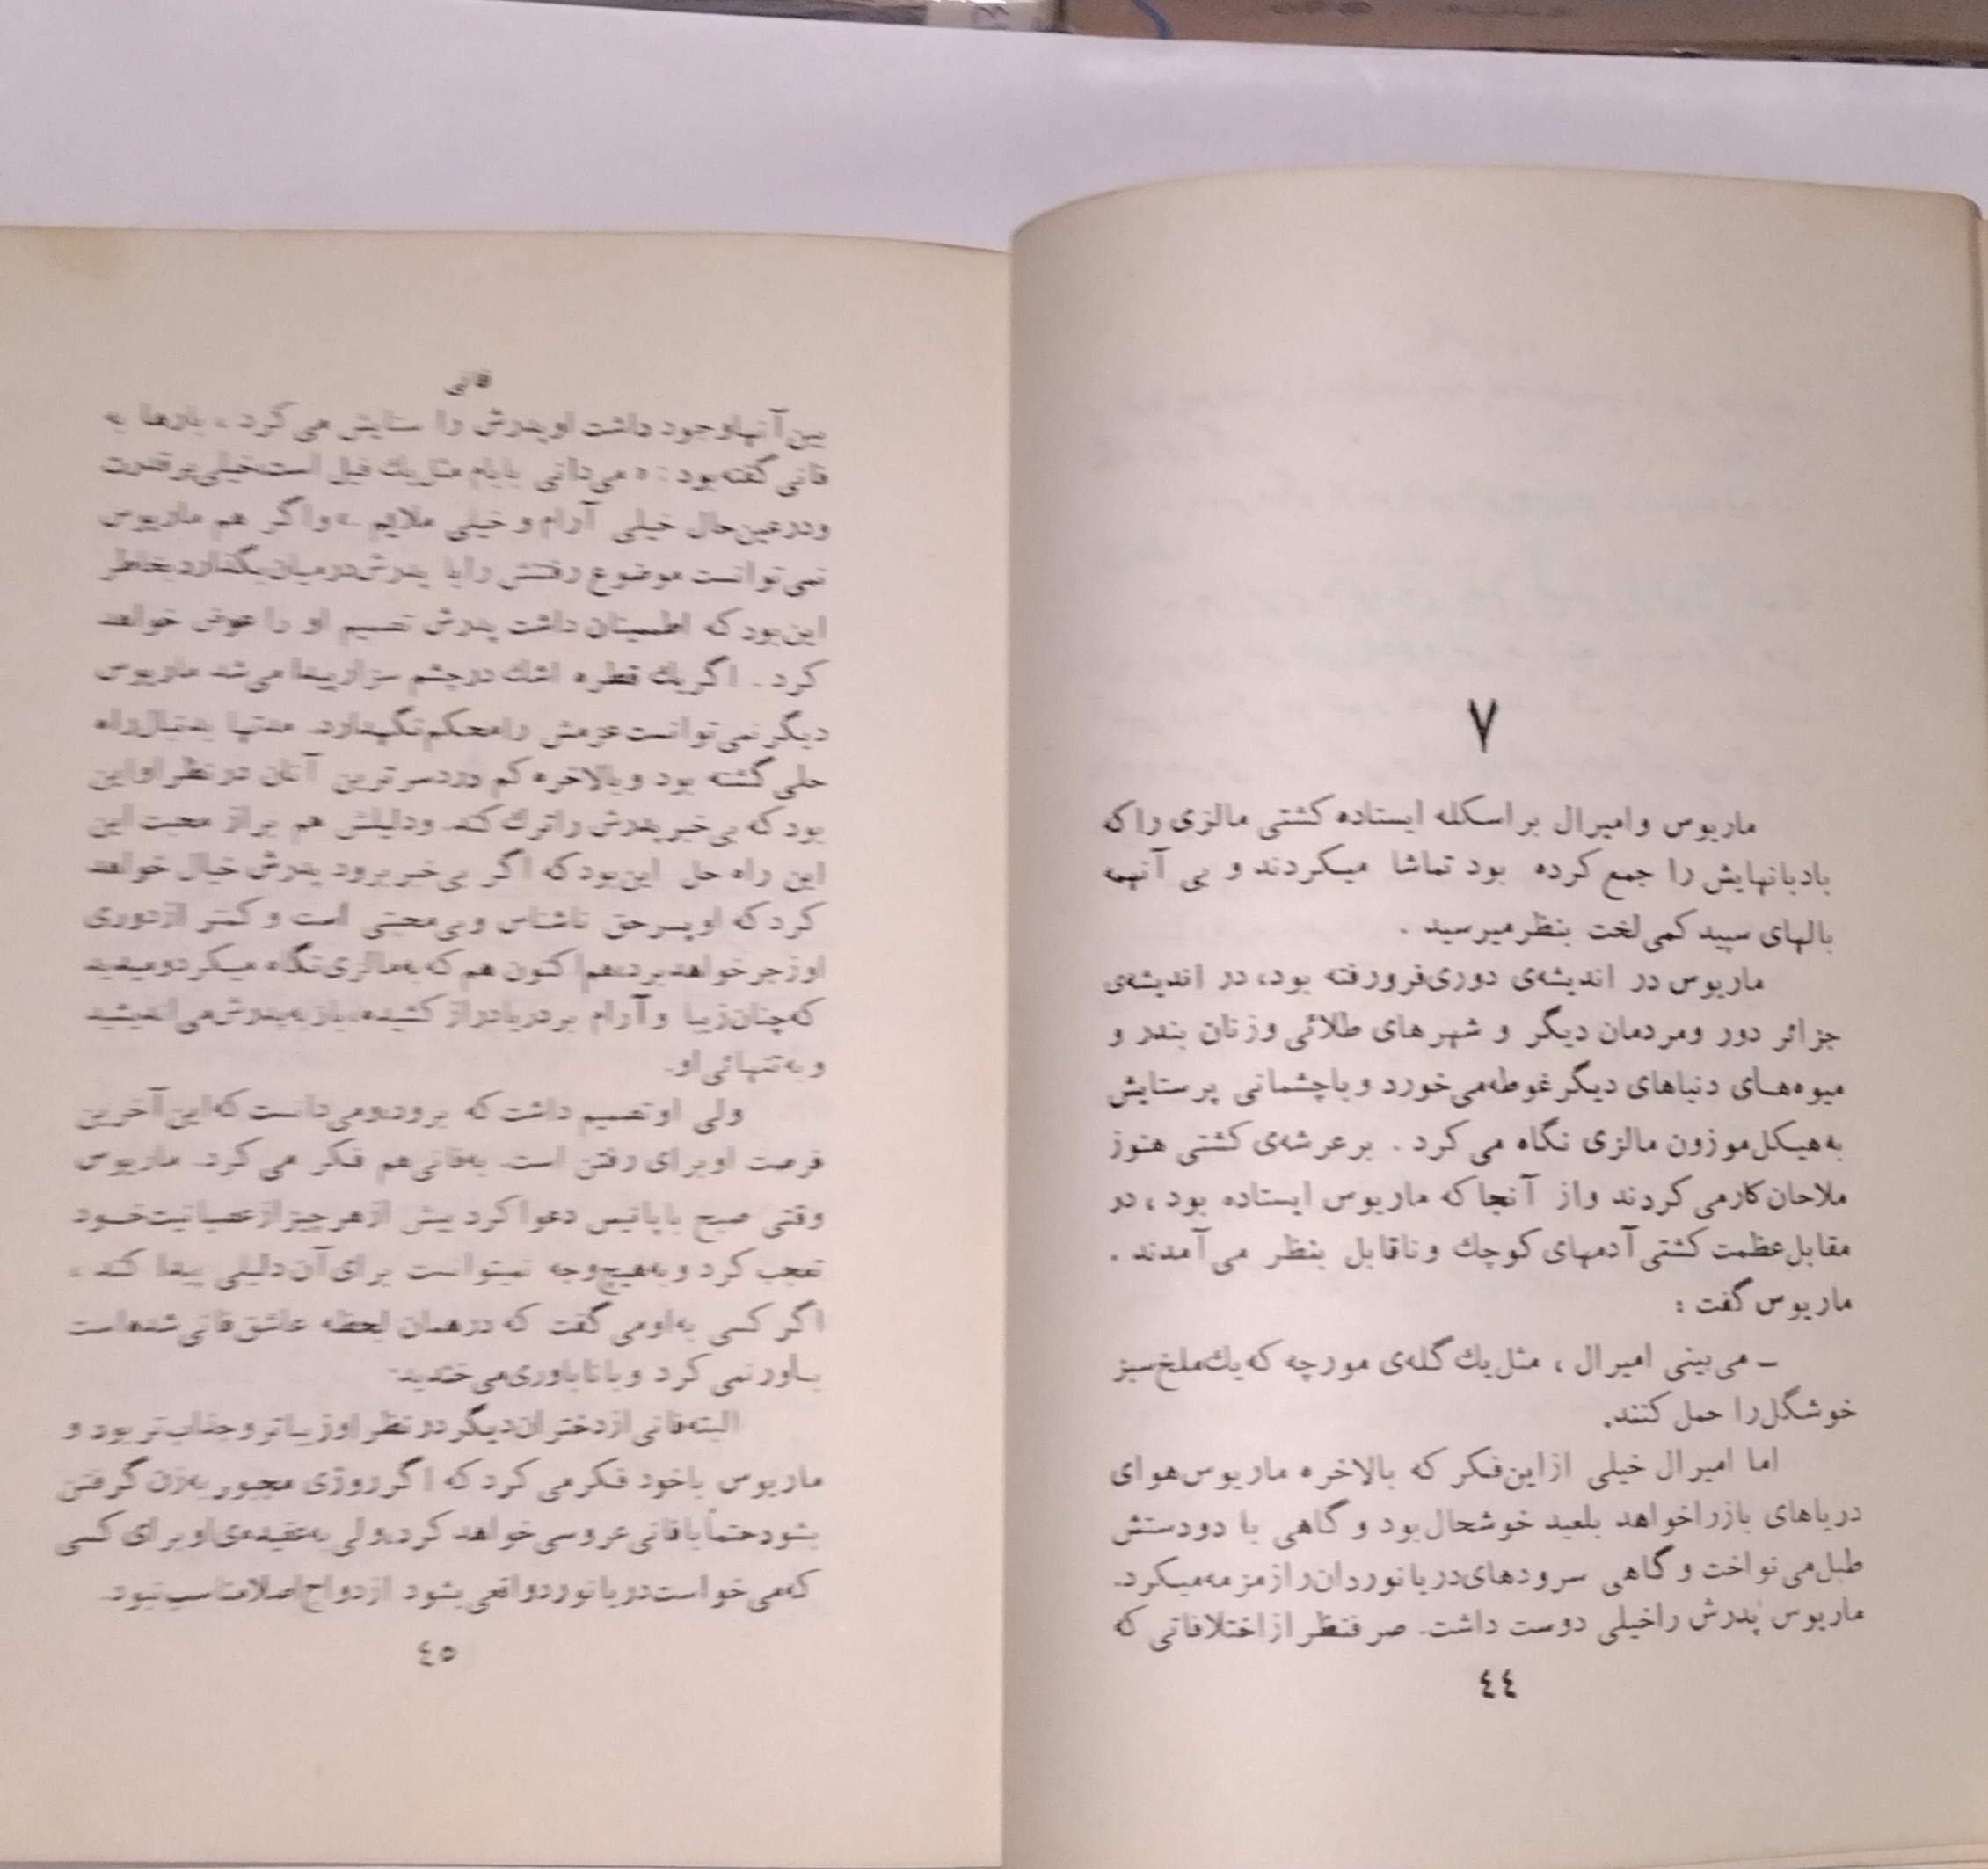 ۷
ماریوس وامیرال براسکله ایستاده کشتی مالزی راکه
بادبانهایش را جمع کرده بود تماشا میکردند و بی آنهمه
بالهای سپید کمی لخت بنظرمیرسید .
ماریوس در اندیشه‌ی دوری‌فرورفته بود، در اندیشه‌ی
جزائر دور ومردمان دیگر و شهرهای طلائی وزنان بندر و
میوه‌های دنیاهای دیگر غوطه‌می‌خورد وباچشمانی پرستایش
به‌هیکل‌موزون مالزی نگاه می‌کرد . برعرشه‌ی کشتی هنوز
ملاحان‌کارمی‌کردند واز آنجاکه ماریوس ایستاده بود ، در
مقابل‌عظمت کشتی آدمهای کوچك وناقابل بنظر می‌آمدند .
ماریوس گفت :
ـ می‌بینی امیرال ، مثل‌یك گله‌ی مورچه که‌یك‌ملخ‌سبز
خوشگل‌را حمل کنند.
اما امیرال خیلی ازاین‌فکر که بالاخره ماریوس‌هوای
دریاهای بازراخواهد بلعید خوشحال‌بود و گاهی با دودستش
طبل‌می‌نواخت و گاهی سرودهای‌دریانوردان‌رازمزمه‌میکرد.
ماریوس پدرش راخیلی دوست داشت. صرفنظر ازاختلافاتی که
٤٤
فانی
بین‌آنهاوجود داشت اوپدرش را ستایش می‌کرد ، بارها به
فانی گفته‌بود : « می‌دانی بابام مثل‌یك فیل است‌خیلی‌پرقدرت
ودرعین‌حال خیلی آرام و خیلی ملایم .» واگر هم ماریوس
نمی‌توانست موضوع رفتنش رابا پدرش‌درمیان‌بگذارد‌بخاطر
این‌بودکه اطمینان داشت پدرش تصمیم او را عوض خواهد
کرد . اگریك قطره اشك درچشم سزارپیدا می‌شد ماریوس
دیگرنمی‌توانست‌عزمش رامحکم‌نگهدارد. مدتها بدنبال‌راه
حلی گشته بود وبالاخره کم دردسرترین آنان درنظراواین
بودکه بی‌خبرپدرش راترك‌کند. ودلیلش هم براز محبت این
این راه حل این‌بودکه اگر بی‌خبربرود پدرش خیال خواهد
کردکه اوپسرحق ناشناس وبی‌محبتی است و کمتر ازدوری
اوزجرخواهدبرد،هم‌اکنون هم که به‌مالزی‌نگاه میکردومیدید
که‌چنان‌زیبا وآرام بردریادراز کشیده،باز به‌پدرش‌می‌اندیشید
وبه‌تنهائی‌او.
ولی اوتصمیم داشت که برود.ومی‌دانست که‌این‌آخرین
فرصت اوبرای رفتن است. به‌فانی‌هم فکر می‌کرد. ماریوس
وقتی صبح باپانیس دعواکرد بیش ازهرچیزازعصبانیت‌خود
تعجب کرد وبه‌هیچ‌وجه نمیتوانست برای‌آن‌دلیلی پیدا کند ،
اگرکسی به‌اومی‌گفت که درهمان لحظه عاشق‌فانی‌شده‌است
باورنمی‌کرد وباناباوری‌می‌خندید.
البته‌فانی‌ازدختران‌دیگردرنظراوزیباتروجذاب‌تربود و
ماریوس باخود فکرمی‌کردکه اگرروزی مجبوربه‌زن‌گرفتن
بشودحتماً‌بافانی‌عروسی‌خواهد کرد.ولی به‌عقیده‌ی‌اوبرای کسی
که‌می‌خواست‌دریانوردواقعی‌بشود ازدواج‌اصلامناسب‌نبود.
٤٥